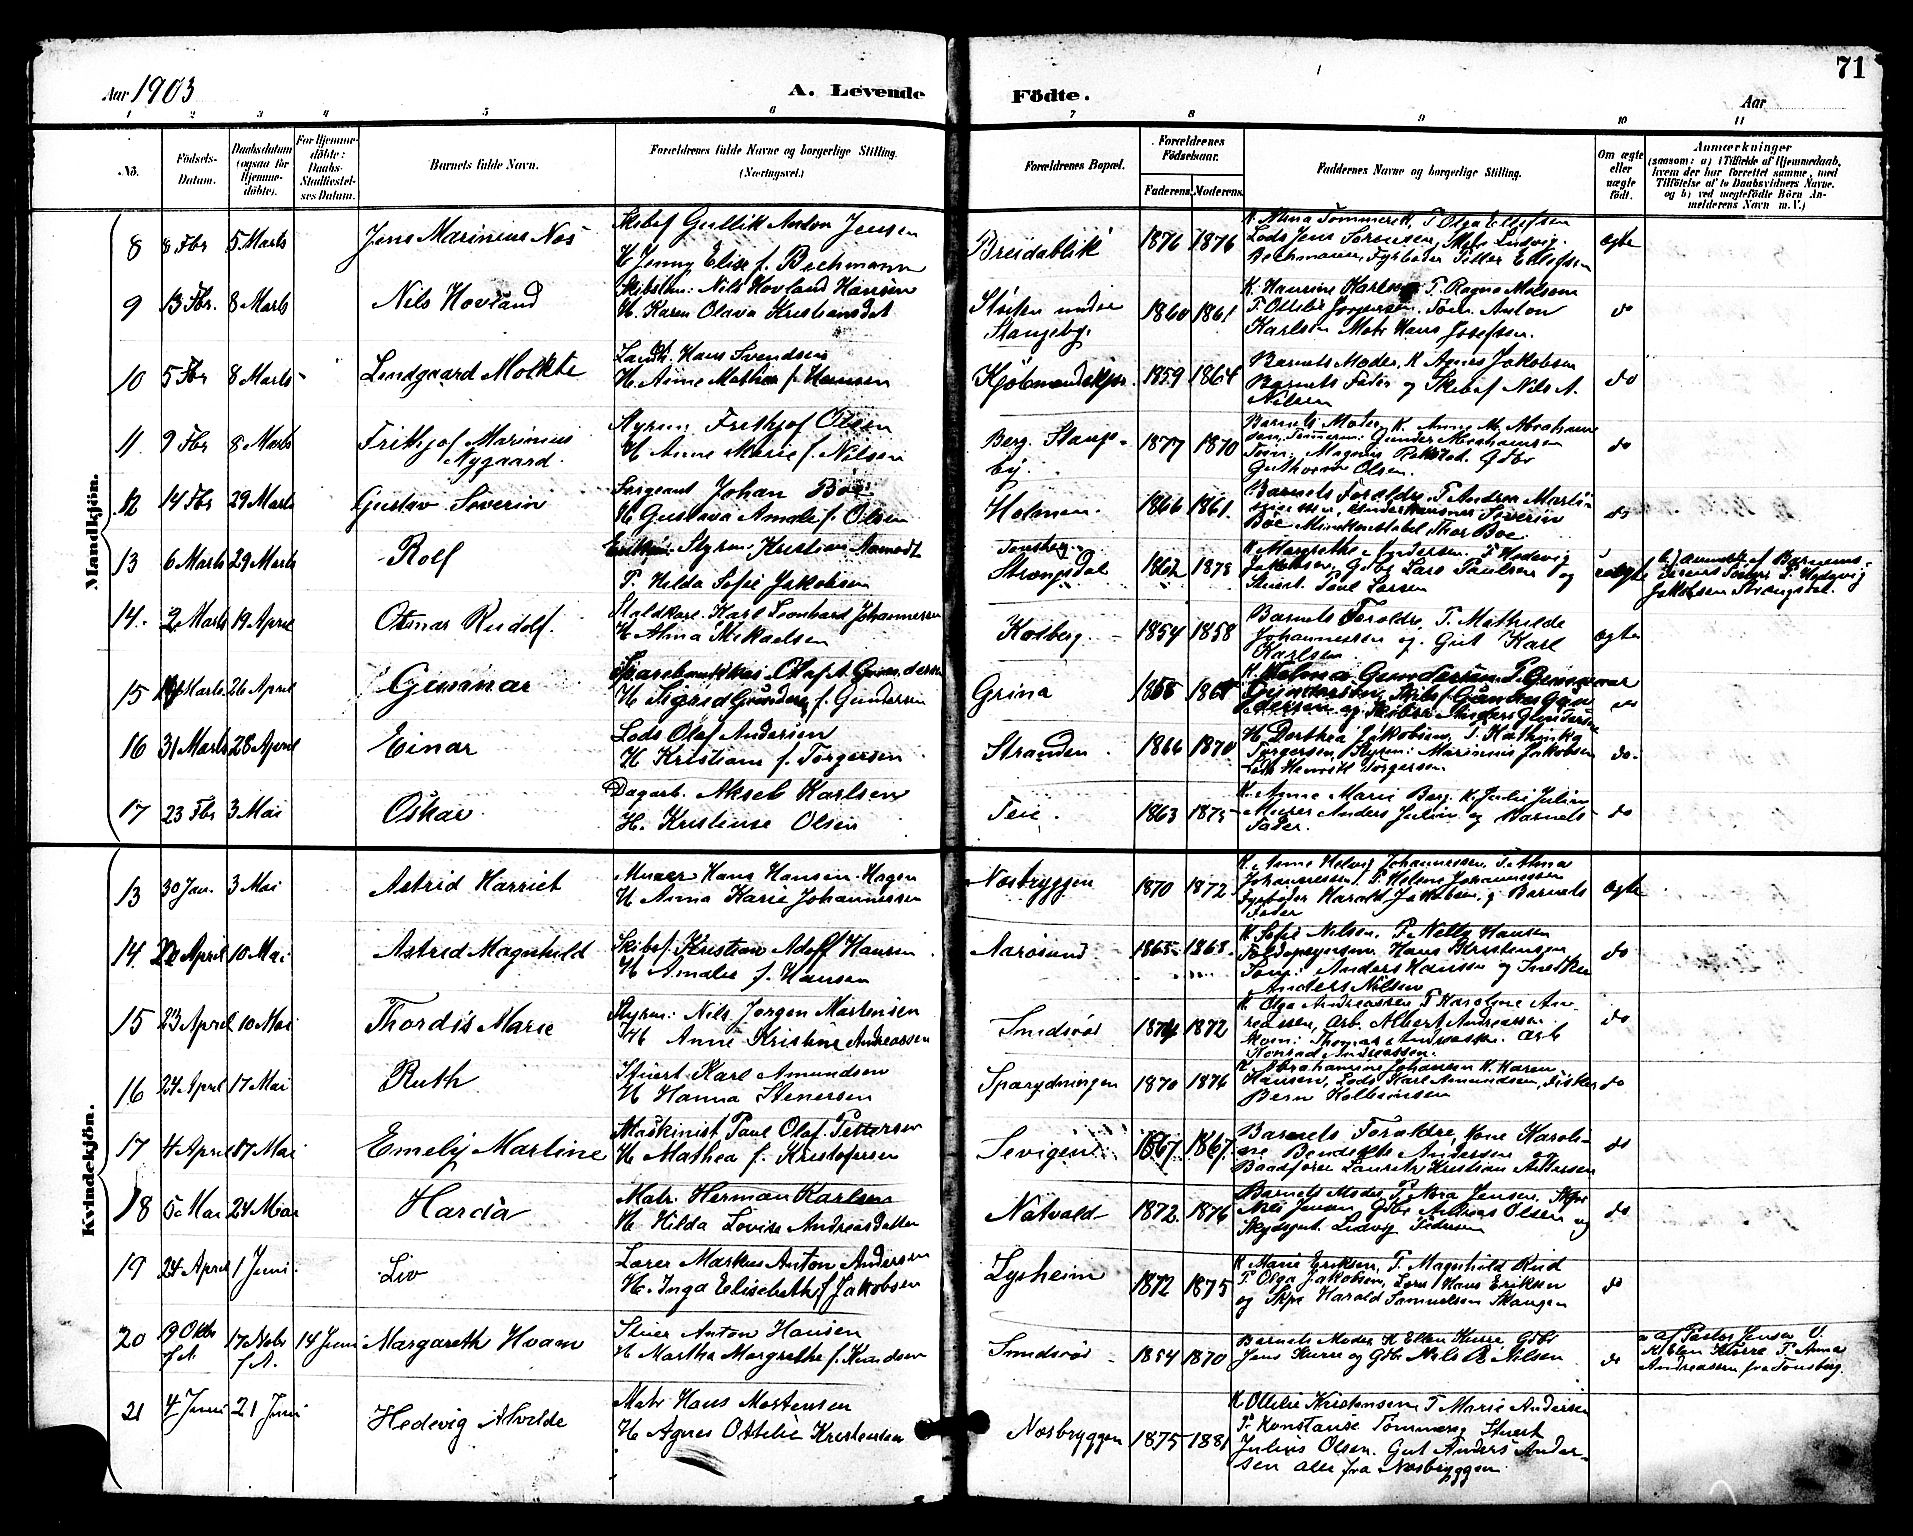 Aar 1903
A. Levende
Födte.
71
Aar
1 2 3 4 5 6 7 8 9 10 11
No.
Födsels-
Datum.
Daabsdatum
(ogsaa for
Hjemme-
döbte).
For Hjemme-
döbte:
Daabs-
Stadfæstel-
ses Datum.
Barnets fulde Navn.
Forældrenes fulde Navne og borgerlige Stilling.
(Næringsvei.)
Forældrenes Bopæl.
Forældrenes
Födselsaar.
Faderens. Moderens.
Faddernes Navne og borgerlige Stilling.
Om ægte
eller
uægte
födt.
Anmærkninger
(saasom: a) i Tilfælde af Hjemmedaab,
hvem der har forrettet samme, med
Tilföielse af to Daabsvidners Navne,
og b) ved uægtefödte Börn An-
melderens Navn m. V.)
Mandkjön.
8 8 Fbr 5 Marts Jens Marinius Nes
Skibsf Gullik Anton Jensen
H Jenny Elise f. Bechmann
Breidablik 1876 1876
Lods Jens Sørensen, Ludvig
Bechmann, Fyrbøder
ægte
9 13 Fbr. 8 Marts Nils Hovland
Nils Hovland Hansen
H. Karen Olava Kristiansdat
Sløiten under
Stangeby. 1860 1861
K. Hansine Karlsen T. Ragna
Tøm. Anton
Karlsen Matr Hans Josefsen.
do
10 5 Fbr 8 Marts Lindgaard Molkte
Landh. Hans Svendsen
H. Anne Mathea f. Hansen
1859 1864
Barnets Moder, K Agnes Jakobsen
Barnets Fader og Skibsf Nils A.
Nilsen
do
11 9 Fbr 8 Marts Frithjof Marinius
Nygaard.
Styrm. Frithjof Olsen
H Anne Marie f. Nilsen
Berg. Stange-
by. 1877 1870
Barnets Moder, K Anne M. Abraham
sen, Tømmerm: Gunder Abrahamsen
Tøm. Magnus Gdbr
Guthorm Olsen.
do
12 14 Fbr 29 Marts Gustav Severin
Sergeant Johan Bøe
H Gustava Amalie f. Olsen
Holmen. 1866 1861.
Barnets Forældre, T Andrea
Severin
Bøe Thor Boe
do
13 6 Marts 29 Marts Rolf
Styrm Kristian
P. Hilda Sofie Jakobsen
Tønsberg
Strængsdal 1862 1878
K. Margrethe Andersen, P Hedevig
Jakobsen, Gdbr Lars Paulsen og
Stuert. Paul Larsen
uægte
b) anmeldt af Barnems-
P Hedevig
Jakobsen Strængsdal.
14. 2 Marts 19 April Otmar Rudolf.
Staldkarl. Karl Leonhard Johannesen
H Alma Mikaelsen
Kolberg. 1854 1858
Barnets Forældre, T. Mathilde
Johannessen og. Gut Karl
Karlsen
ægte
15 Marts 26 April Gunnar
Olaf A. Gundersen
H Sigrid f. Gundersen
Grina
K. Helma Gundersen
Gundersen, Skibsf. Gunder Gun
dersen og Anders Gundersen
do
16 31 Marts 28 April Einar
Lods Olaf Andersen
H Kristiane f. Torgersen
Stranden 1866 1870
K Dorthea Jakobsen, T. Kathinka
Torgersen, Styrm: Marinius Jakobsen
Henrik Torgersen.
do
17 23 Fbr 3 Mai Oskar
Dagarb. Aksel Karlsen
H. Kristense Olsen
Teie. 1863 1875
K. Anne Marie Berg. K. Julie Julin
Murer Anders Julin og Barnets
Fader.
do
Kvindekjön.
13 30 Jan. 3 Mai Astrid Harriet
Murer Hans Hansen Hagen
H Anna Karie Johannessen
Næsbryggen 1870 1872
K. Anne Helvig Johannessen, T. Alma
Johannessen, P Helene Johannessen
Fyrbøder Harald Jakobsen og Barnets
Fader
ægte
14. 20 April 10 Mai Astrid Magnhild
Skibsf. Kristian Adolf Hansen
H Amalie f. Hansen
Aarøsund 1865 1868
K Sofie Nilsen, P. Nelly Hansen
Hans Kristensen
Anders Hansen og Snedker
Anders Nilsen
do
15 23 April 10 Mai Thordis Marie
Styrm: Nils Jørgen Mortensen
H Anne Kristine Andreassen
Smidsrød 1874 1872
K. Olga Andreassen T Karoline An-
dreassen, Arb. Albert Andreassen
Thomas Andreassen. Arb
Konrad Andreassen.
do
16 24 April 17 Mai Ruth
Stuert. Karl Amundsen
H Hanna Stenersen
Sparydningen 1870 1876
K. Abrahamine Johansen K. Karen
Hansen, Lods Karl Amundsen, Fisker
Bern Kolbjønsen
do
17 4 April 17 Mai Emely Martine
Maskinist Paul Olaf Pettersen
H Mathea f. Kristofersen
1867 1867.
Barnets Forældre, Kone Karoli-
ne Bendikte Andersen og
Baadfører Lauritz Kristian Andersen
do
18 5 Mai 24 Mai Harda
Matr. Herman Karlsen
H. Hilda Lovise Andreasdatter
Natvald 1872 1876
Barnets Moder P. Nora Jensen, Skpr
Nils Jensen, Gdbr Andreas Olsen og
Ludvig Pedersen
do
19 24 April 1 Juni Liv
Lærer Markus Anton Andersen
H. Inga Elisabeth f Jakobsen
Lysheim 1872 1875
K Marie Eriksen, T. Magnhild Rud
P. Olga Jakobsen, Lærer Hans Eriksen
og Skpr Harald Samuelsen Skaugen
do
20 19 Oktbr
f.A. 17 Novbr
f.A. 14 Juni Margareth Hvam
Anton Hansen
H Martha Margrethe f. Knudsen
Smidsrød 1854 1870
Barnets Moder K Ellen Kurre, Gdbr
Jens Kurre og Gdbr Nils B Nilsen
do
a af Pastor Jensen V.
K Ellen P. Anna
Andreassen fra Tønsberg.
21 4 Juni 21 Juni Hedevig Alvilde
Matr Hans Mortensen
H. Agnes Ottilie Kristensen
Næsbryggen 1875 1881
K Ottilie Kristensen, T. Marie Andersen
P. Konstanse Tømmerg Stuert
Julius Olsen. Gut Anders Ander-
sen alle fra Næsbryggen